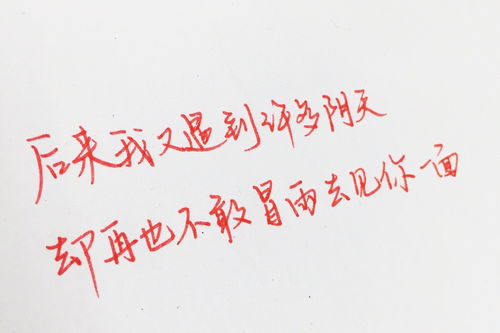 后来我又遇到许多阴天
却再也不敢冒雨去见你一面